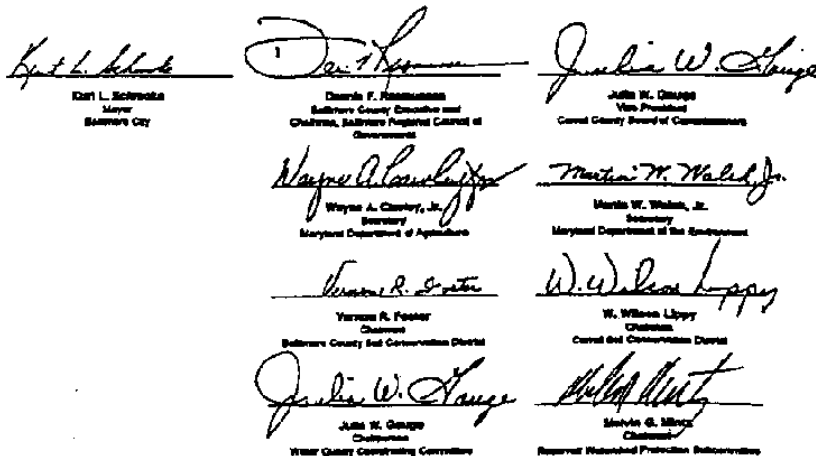 Kurt L. Schmoke
Kurt L. Schmoke
Mayor
Baltimore City
Dennis F. Rasmussen
Baltimore County Executive and
Chairman, Baltimore Regional Council of
Governments
Julia W. Gouge
Julia W. Gouge
Vice President
Carroll County Board of Commissioners
Wayne A. Cawley, Jr.
Secretary
Maryland Department of Agriculture
Martin W. Walsh, Jr.
Martin W. Walsh, Jr.
Secretary
Maryland Department of the Environment
Vernon R. Foster
Vernon R. Foster
Chairman
Baltimore County Soil Conservation District
W. Wilson Lippy
W. Wilson Lippy
Chairman
Carroll Soil Conservation District
Julia W. Gouge
Julia W. Gouge
Chairwoman
Water Quality Coordinating Committee
Melvin G. Mintz
Chairman
Reservoir Watershed Protection Subcommittee